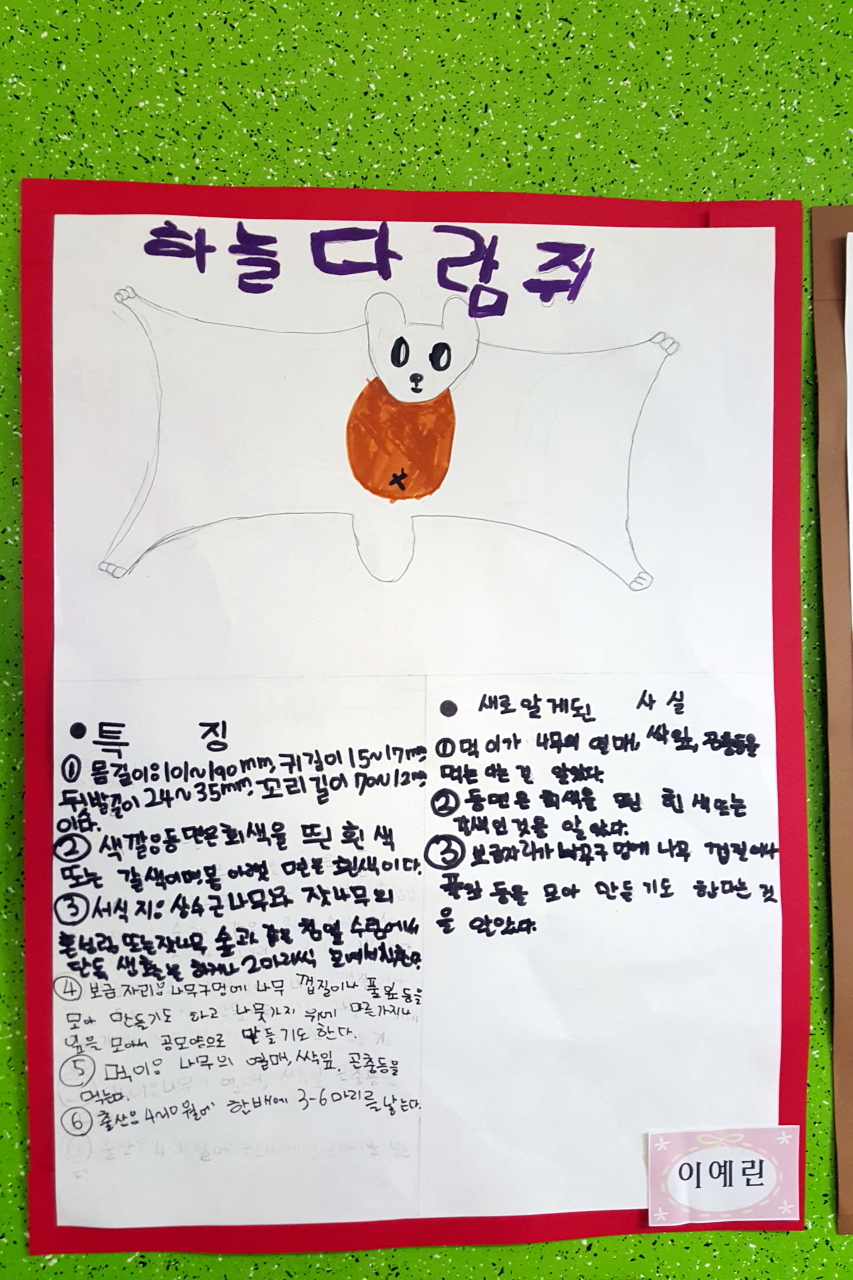 하늘다람쥐
● 특 징
① 몸길이: 101~190mm, 귀길이 15~17mm
뒷발길이 24~35mm, 꼬리길이 70~12
이다.
② 색깔: 등면은 회색을 띈 흰색
또는 갈색이며 몸 아랫면은 흰색이다.
③ 서식지: 상수근나무와 잣나무의
혼성림 또는 잣나무 숲과 같은 침엽수림에서
단독 생활을 하거나 2마리씩
④ 보금자리: 나무구멍에 나무 껍질이나 풀잎 등을
모아 만들기도 하고 나뭇가지 위에 마른가지나
잎을 모아서 공모양으로 만들기도 한다.
⑤ 먹이: 나무의 열매, 싹잎, 곤충등을
먹는다.
⑥ 출산: 4~10월에 한배에 3-6마리를 낳는다.
● 새로알게된 사실
① 먹이가 나무의 열매, 싹잎, 곤충등을
먹는 다는 걸 알았다.
② 등면은 회색을 띈 흰색또는
갈색인것을 알았다.
③ 보금자리가 나무구멍에 나무 껍질이나
풀잎 등을 모아 만들기도 한다는 것
을 알았다.
이예린